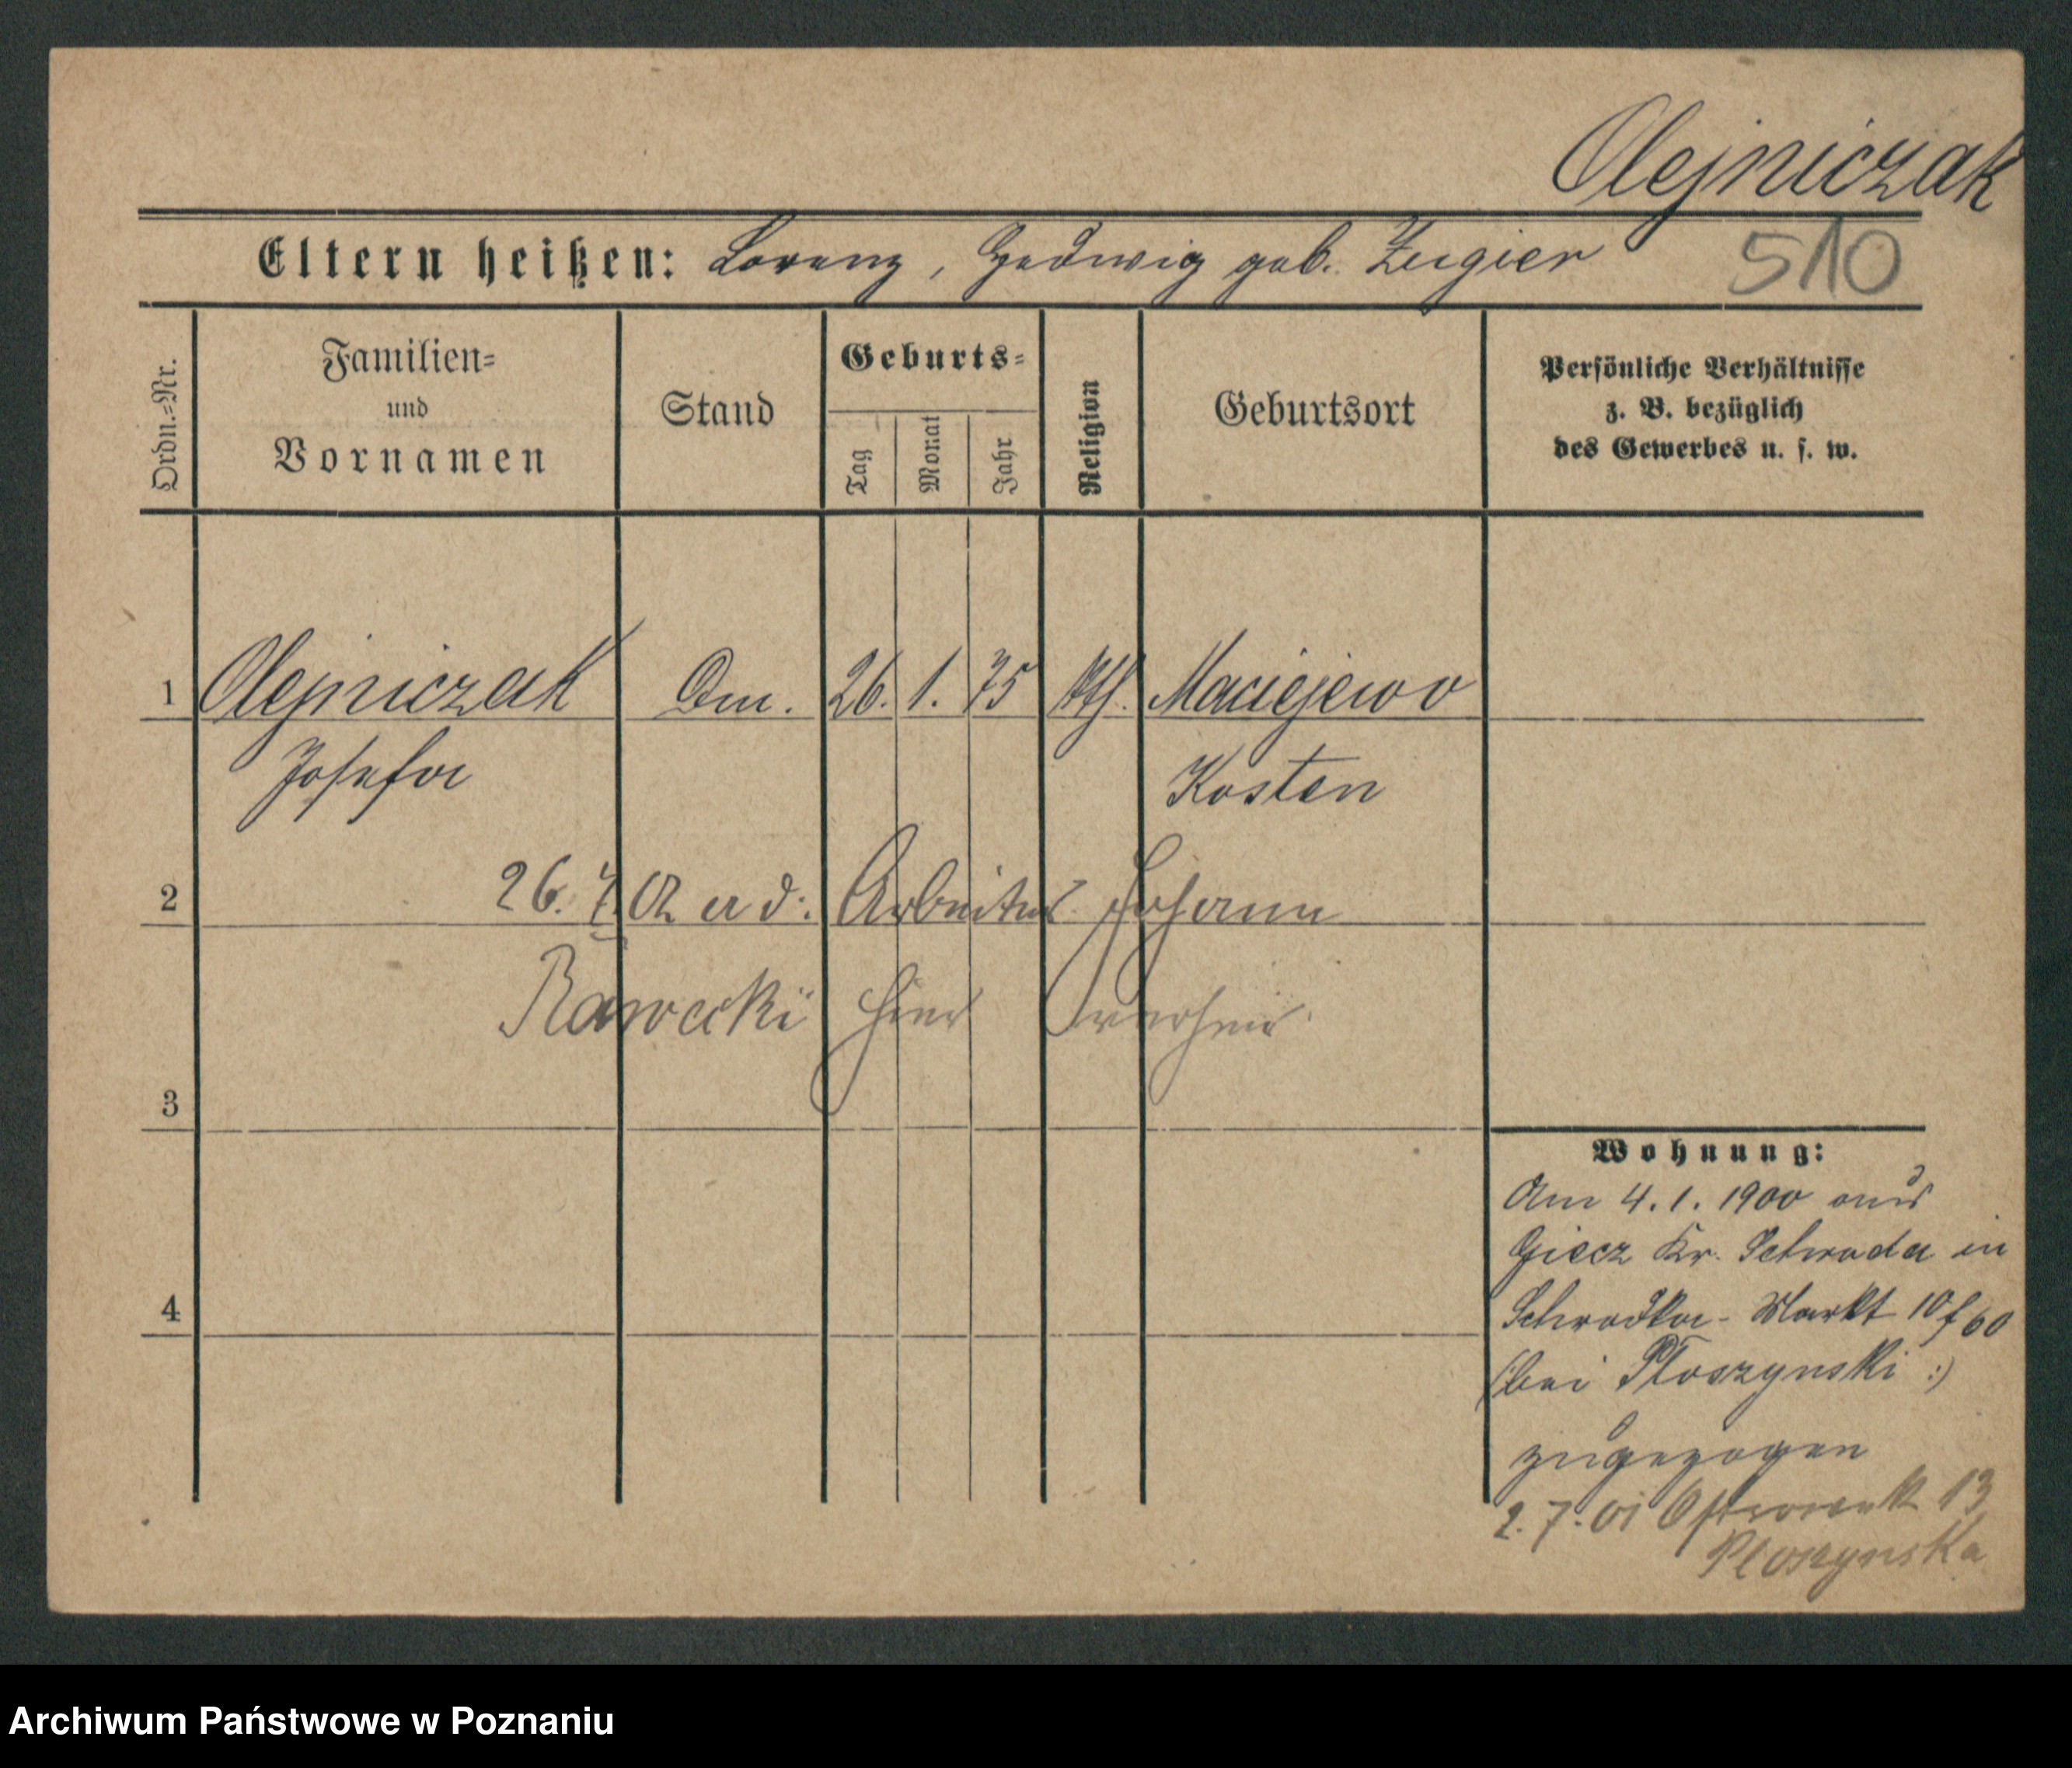 Olejniczak
Eltern heißen: Lorenz, Hedwig geb. Zugier
510
Ordn.=Nr.
Familien=
und
Vornamen
Stand
Geburts=
Tag
Monat
Jahr
Religion
Geburtsort
Persönliche Verhältnisse
z. B. bezüglich
des Gewerbes u. s. w.
1 Olejniczak 26. 1. 75 kth. Maciejewo
Josefa Kosten
2 26. 02 d: Arbeiter Johann
Rawecki hier
3
Wohnung:
Am 4. 1. 1900 aus
Giecz Kr. Schroda in
4
Schrodka-Markt 10 f 60
(bei Ploszynski :)
zugezogen
2. 7. 01 Ostrowek 13
Ploszynska
Archiwum Państwowe w Poznaniu